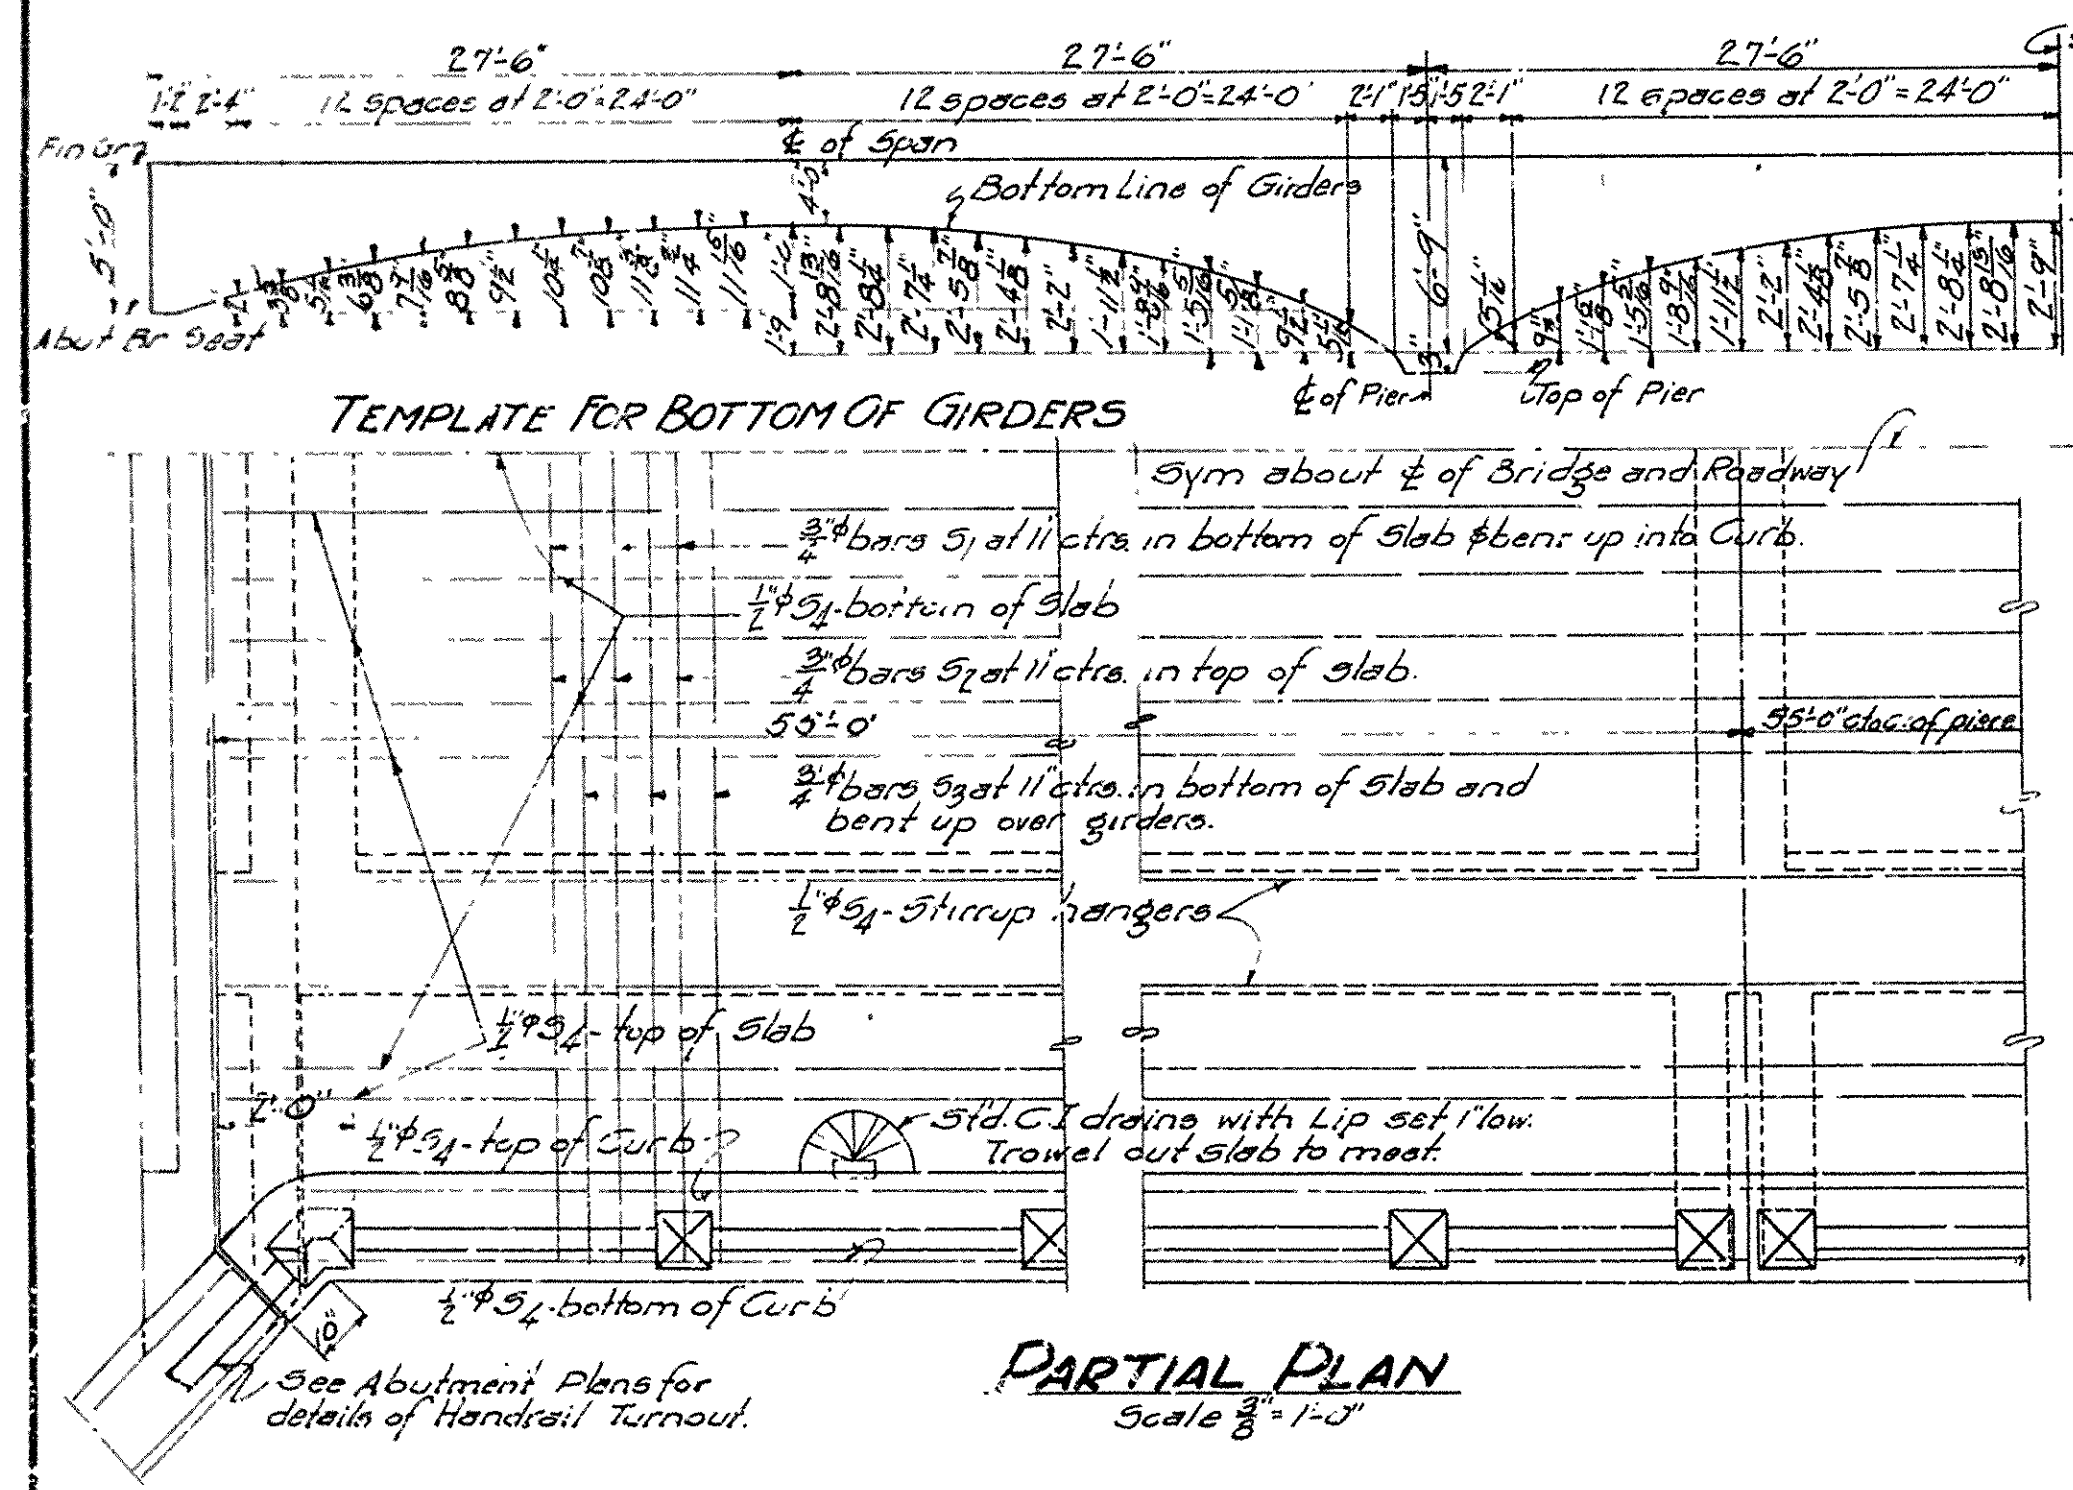 27'-6" 27'-6" 27'-6"
1'-2" 2'-4" 12 spaces at 2'-0"=24'-0" 12 spaces at 2'-0"=24'-0" 2'-1" 1'-5 1'-5 2'-1" 12 spaces at 2'-0"=24'-0"
Fin Gr
℄ of Span
Bottom Line of Girders
5'-0" 4'-0" 6'-9"
2" 9½" 11¼" 1'-0"
1'-9" 2'-8 13/16" 2'-8¼" 2'-7¼" 2'-5⅞" 2'-4⅛" 2'-2" 1'-11½" 1'-8 9/16" 1'-5 5/16" 1'-1⅝" 9½" 5¼" 3" 5¼" 9½" 1'-1⅝" 1'-5 5/16" 1'-8 9/16" 1'-11½" 2'-2" 2'-4⅛" 2'-5⅞" 2'-7¼" 2'-8¼" 2'-8 13/16" 2'-9"
Abut Br Seat
℄ of Pier
Top of Pier
TEMPLATE FOR BOTTOM OF GIRDERS
Sym about ℄ of Bridge and Roadway
¾"ϕ bars S1 at 11" ctrs. in bottom of Slab & bent up into Curb.
½"ϕ S4-bottom of Slab
¾"ϕ bars S2 at 11" ctrs. in top of slab.
55'-0"
55'-0" c to c. of piers
¾"ϕ bars S3 at 11" ctrs. in bottom of Slab and
bent up over girders.
½"ϕ S4-Stirrup hangers
½"ϕ S4-top of Slab
2'-0"
½"ϕ S4-top of Curb
Std. C.I drains with Lip set 1" low.
Trowel out slab to meet.
½"ϕ S4-bottom of Curb
See Abutment Plans for
details of Handrail Turnout.
PARTIAL PLAN
Scale ⅜"=1'-0"